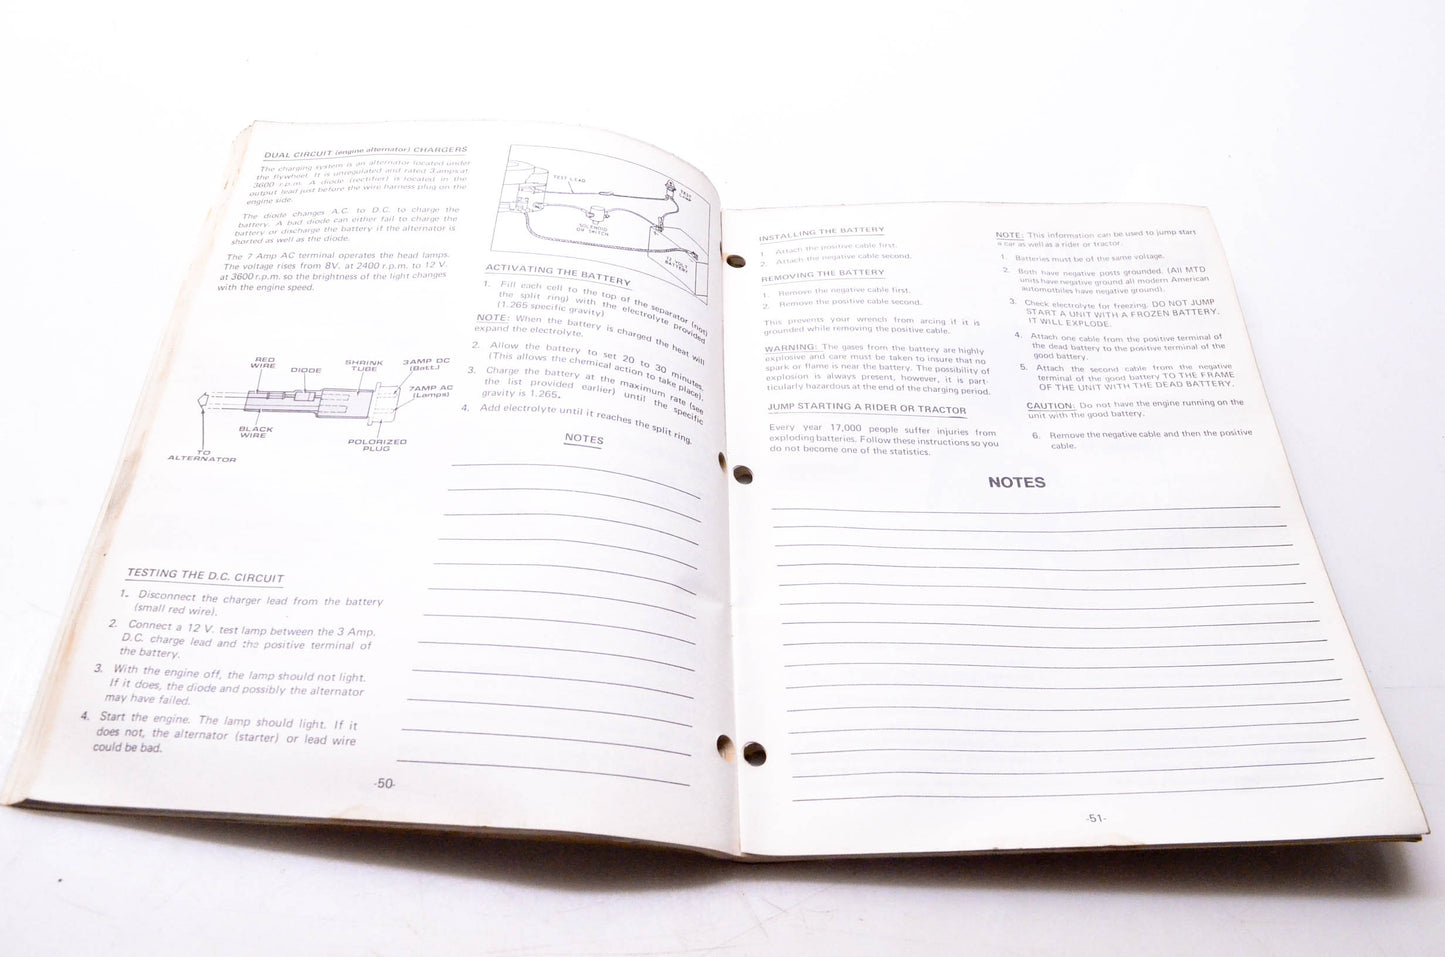 DUAL CIRCUIT (engine alternator) CHARGERS
The charging system is an alternator located under
the flywheel. It is unregulated and rated 3 amps at
3600 r.p.m. A diode (rectifier) is located in the
output lead just before the wire harness plug on the
engine side.
The diode changes A.C. to D.C. to charge the
battery. A bad diode can either fail to charge the
battery or discharge the battery if the alternator is
shorted as well as the diode.
The 7 Amp AC terminal operates the head lamps.
The voltage rises from 8V. at 2400 r.p.m. to 12 V.
at 3600 r.p.m. so the brightness of the light changes
with the engine speed.
RED
WIRE
DIODE
SHRINK
TUBE
3AMP DC
(Batt.)
7AMP AC
(Lamps)
BLACK
WIRE
POLORIZED
PLUG
TO
ALTERNATOR
TESTING THE D.C. CIRCUIT
1. Disconnect the charger lead from the battery
(small red wire).
2. Connect a 12 V. test lamp between the 3 Amp.
D.C. charge lead and the positive terminal of
the battery.
3. With the engine off, the lamp should not light.
If it does, the diode and possibly the alternator
may have failed.
4. Start the engine. The lamp should light. If it
does not, the alternator (starter) or lead wire
could be bad.
TEST LEAD
TEST
LAMP
SOLENOID
OR SWITCH
12 VOLT
BATTERY
ACTIVATING THE BATTERY
1. Fill each cell to the top of the separator (not
the split ring) with the electrolyte provided
(1.265 specific gravity)
NOTE: When the battery is charged the heat will
expand the electrolyte.
2. Allow the battery to set 20 to 30 minutes.
(This allows the chemical action to take place).
3. Charge the battery at the maximum rate (see
the list provided earlier) until the specific
gravity is 1.265.
4. Add electrolyte until it reaches the split ring.
NOTES
-50-
INSTALLING THE BATTERY
1. Attach the positive cable first.
2. Attach the negative cable second.
REMOVING THE BATTERY
1. Remove the negative cable first.
2. Remove the positive cable second.
This prevents your wrench from arcing if it is
grounded while removing the positive cable.
WARNING: The gases from the battery are highly
explosive and care must be taken to insure that no
spark or flame is near the battery. The possibility of
explosion is always present, however, it is part-
ticularly hazardous at the end of the charging period.
JUMP STARTING A RIDER OR TRACTOR
Every year 17,000 people suffer injuries from
exploding batteries. Follow these instructions so you
do not become one of the statistics.
NOTE: This information can be used to jump start
a car as well as a rider or tractor.
1. Batteries must be of the same voltage.
2. Both have negative posts grounded. (All MTD
units have negative ground all modern American
automobiles have negative ground).
3. Check electrolyte for freezing. DO NOT JUMP
START A UNIT WITH A FROZEN BATTERY.
IT WILL EXPLODE.
4. Attach one cable from the positive terminal of
the dead battery to the positive terminal of the
good battery.
5. Attach the second cable from the negative
terminal of the good battery TO THE FRAME
OF THE UNIT WITH THE DEAD BATTERY.
CAUTION: Do not have the engine running on the
unit with the good battery.
6. Remove the negative cable and then the positive
cable.
NOTES
-51-